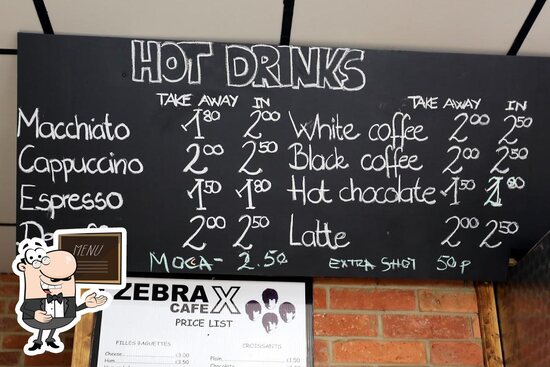 HOT DRINKS
TAKE AWAY IN TAKE AWAY IN
Macchiato 1.80 2.00 White coffee 2.00 2.50
Cappuccino 2.00 2.50 Black coffee 2.00 2.50
Espresso 1.50 1.80 Hot chocolate 1.50 1.80
2.00 2.50 Latte 2.00 2.50
MOCA - 2.50 EXTRA SHOT 50p
MENU
ZEBRA X
CAFE
PRICE LIST
FILLES BAGUETTES CROISSANTS
Cheese £3.00 Plain £1.50
£3.50